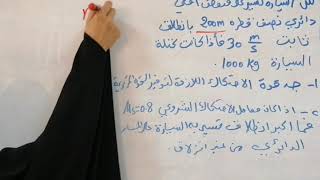 السيارة
دائري نصف قطره 200m بانطلاق
ثابت 30 m/s فإذا كانت كتلة
السيارة 1000 kg
1- جد قوة الاحتكاك اللازمة لتوفير القوة المركزية
2- اذا كان معامل الاحتكاك الشروعي Ms=0.8
فما اكبر انطلاق تسير به السيارة على المسار
الدائري من غير انزلاق